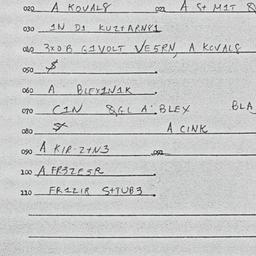 020 A KOVAL8 022 A St M1T 8
030 1N D1 KUZtARN41
040 3XOB G1VOLT VE5RN, A KOVAL8
050 $
060 A BLEX1N1K
070 C1N 8GL A BLEX BLA
080 $ A CINK
090 A KIR-ZtN3 092
100 A FR3ZE5R
110 FR1Z1R StTUB3